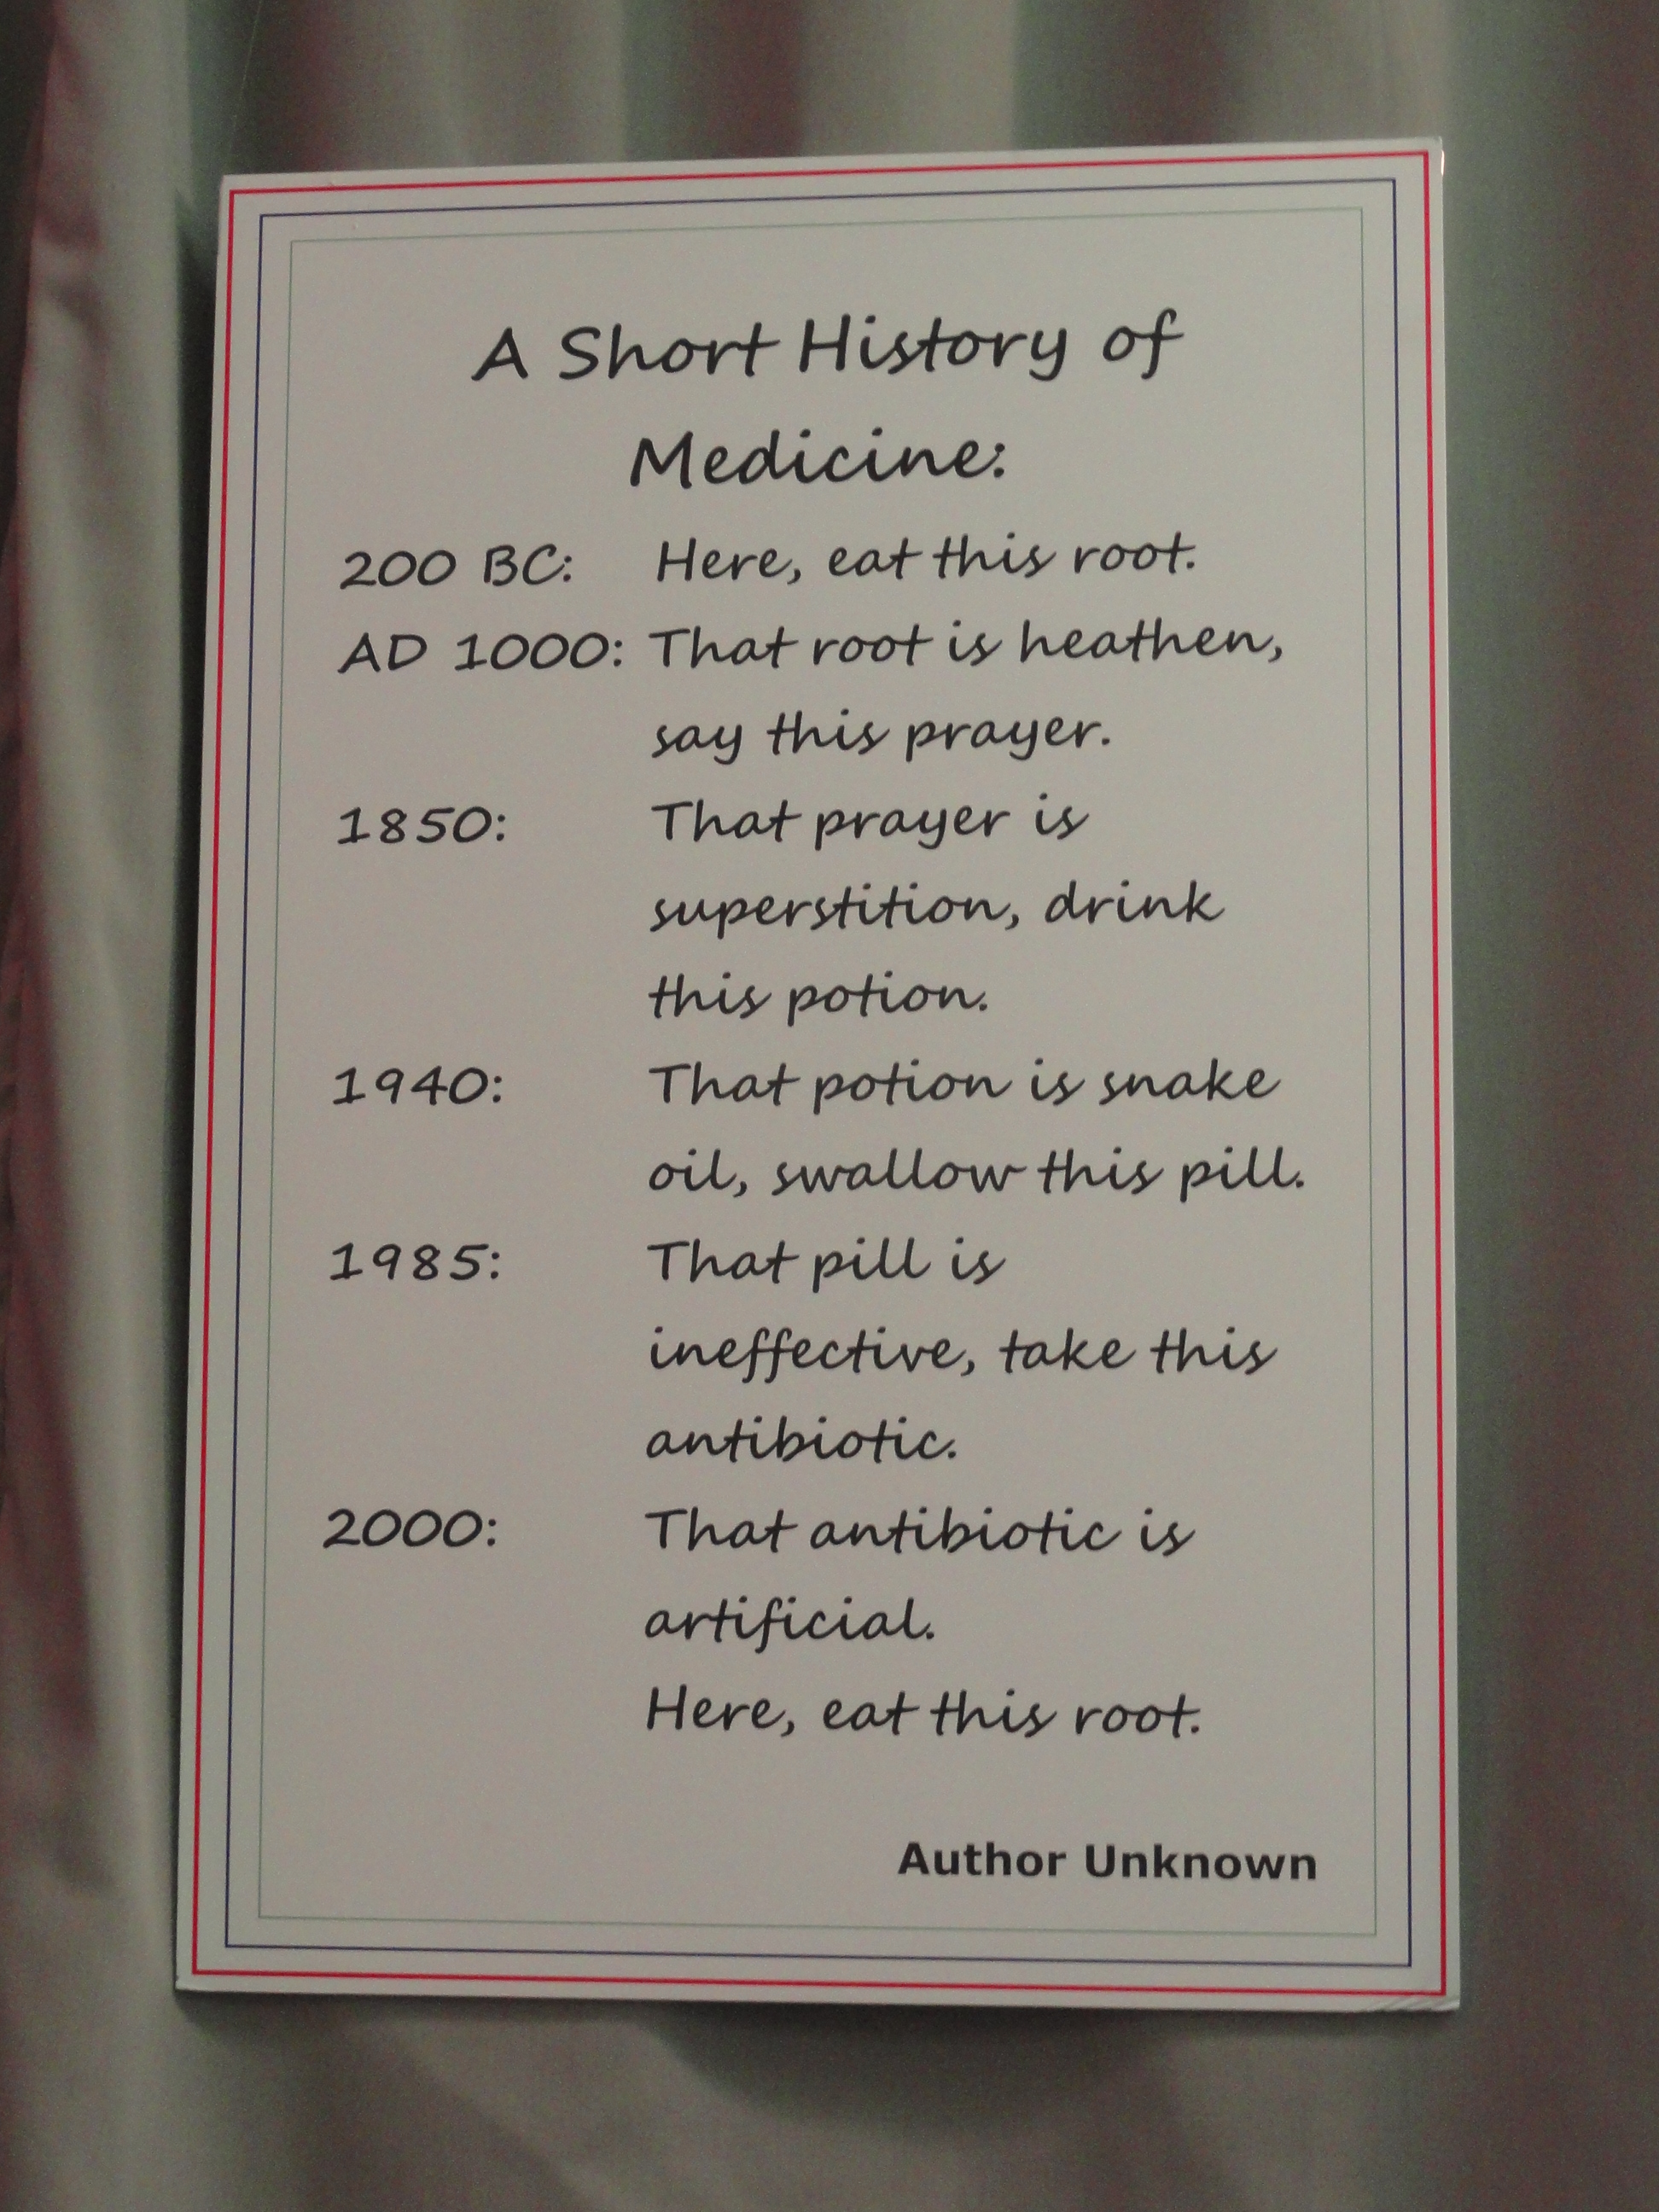 A Short History of
Medicine:
200 BC: Here, eat this root.
AD 1000: That root is heathen,
say this prayer.
1850: That prayer is
superstition, drink
this potion.
1940: That potion is snake
oil, swallow this pill.
1985: That pill is
ineffective, take this
antibiotic.
2000: That antibiotic is
artificial.
Here, eat this root.
Author Unknown